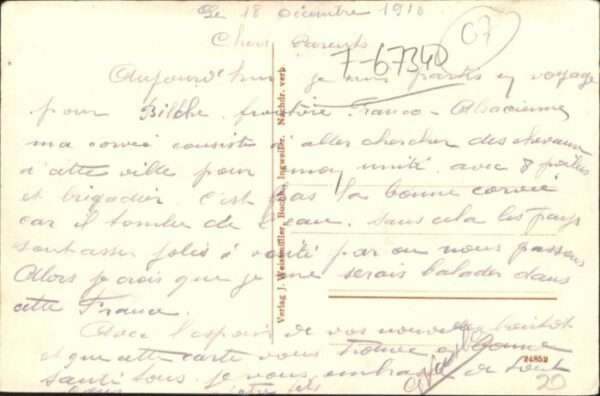 Le 18 Décembre 1918
07
Chers Parents
7-67340
Aujourd'hui je suis partis en voyage
pour Bitche frontière Franco-Alsacienne
ma corvée consiste à aller chercher des chevaux
d'cette ville pour mon unité avec 8 poilus
et brigadier. C'est pas la bonne corvée
car il tombe de l'eau. Sans cela les pays
sont assez jolis à visité par ou nous passons
Alors je crois que je me serais balader dans
cette France.
Avec l'espoir de vos nouvelles bientôt
et que cette carte vous trouve en bonne
santé tous je vous embrasse de tout
votre fils
Verlag J. Weistemiller, Buchh., Ingweiler. Nachdr. verb.
24852
20